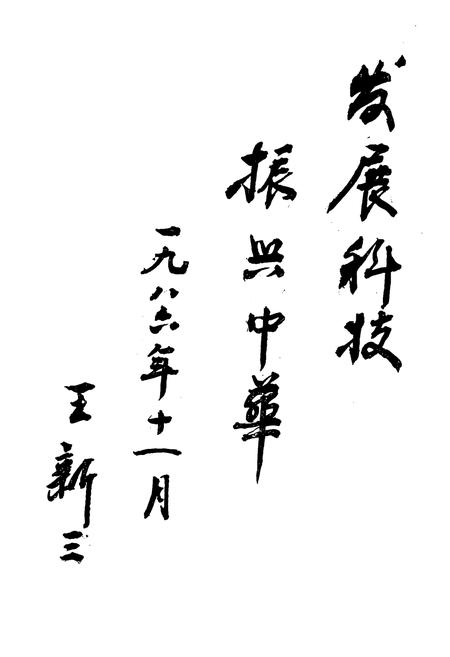 发展科技
振兴中華
一九八六年十一月
王新三